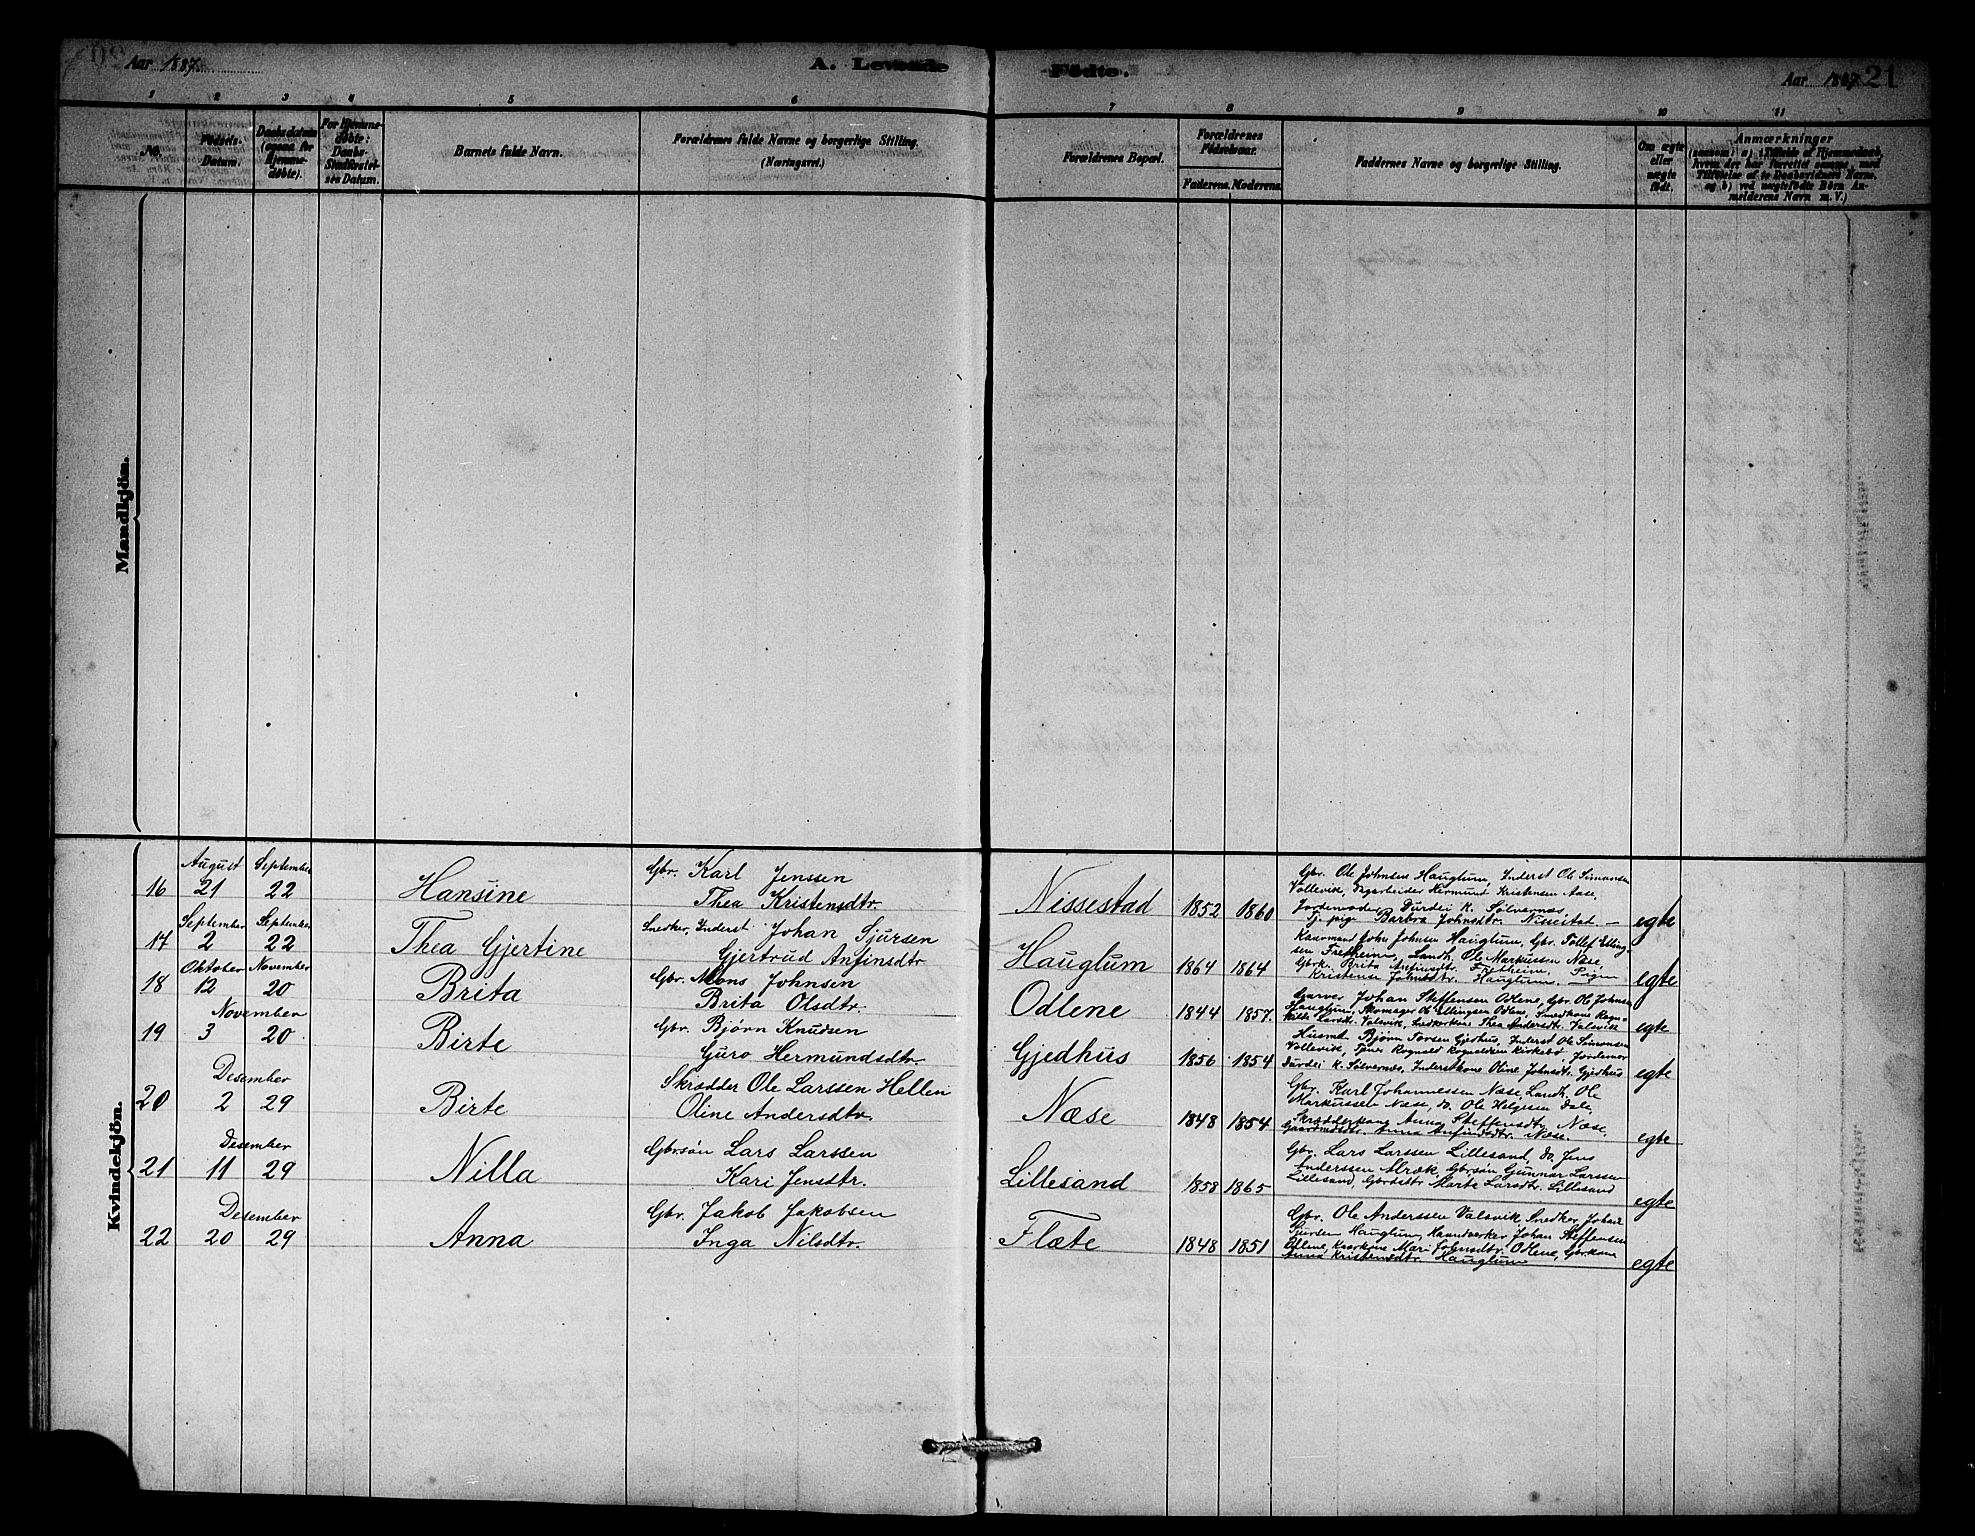 Aar 1887.
A. Levende Födte.
Aar 1887.
21
1 2 3 4 5 6 7 8 9 10 11
No.
Födsels-
Datum.
Daabsdatum
(ogsaa for
Hjemme-
döbte).
For Hjemme-
döbte:
Daabs-
Stadfæstel-
ses Datum.
Barnets fulde Navn.
Forældrenes fulde Navne og borgerlige Stilling.
(Næringsvei.)
Forældrenes Bopæl.
Forældrenes
Födselsaar.
Faderens. Moderens.
Faddernes Navne og borgerlige Stilling.
Om ægte
eller
uægte
födt.
Anmærkninger
(saasom: a) i Tilfælde af Hjemmedaab,
hvem der har forrettet samme, med
Tilföielse af to Daabsvidners Navne,
og b) ved uægtefödte Börn An-
melderens Navn m. V.)
Mandkjön.
Kvindekjön.
August September
16 21 22 Hansine
Gbr. Karl Jenssen
Thea Kristensdtr.
Nissestad 1852 1860
Gbr. Ole Johnsen Hauglum, Inderst Ole Simonsen
Vollevik, Dagarbeider Hermund Kristensen Aase,
Jordemoder Durdei K. Sølvernæs,
Tj. pige Barbra Johnsdtr. Nissestad —
egte
September September
17 2 22 Thea Gjertine
Snedker, Inderst Johan Sjursen
Gjertrud Anfinsdtr.
Hauglum 1864 1864
Kaarmand John Johnsen Hauglum, Gbr. Tollef Elling-
sen Fretheim, Landh. Ole Markussen Næse,
Gbrk. Brita Anfinsdtr. Fretheim, Pige
Kristense Johnsdtr. Hauglum. —
egte
Oktober November
18 12 20 Brita
Gbr. Mons Johnsen
Brita Olsdtr.
Odlene 1844 1857.
Garver Johan Steffensen Odlene, Gbr. Ole Johnsen
Hauglum, Skomager Ole Ellingsen Odlene, Smedkone Ragn-
hilde Larsdtr. Valsvik, Snedkerkone Thea Andersdtr. Valsvik
egte
November
19 3 20 Birte
Gbr. Bjørn Knudsen
Guro Hermundsdtr.
Gjedhus 1856 1854
Husmd. Bjørn Torsen Gjedhus, Inderst Ole Simonsen
Vollevik, Tjener Rognald Rognaldsen Kirkebø, Jordemor
Durdei K. Sølvernæs, Inderstkone Oline Johnsdtr. Gjedhus
egte
Desember
20 2 29 Birte
Skrædder Ole Larssen Hellen
Oline Andersdtr.
Næse 1848 1854
Gbr. Karl Johannessen Næse, Landh. Ole
Markussen Næse, do. Ole Helgesen Dale,
Skrædderkone Anna Steffensdtr. Næse,
Gaardmdsdtr. Anna Anfinsdtr. Næse.
egte
Desember
21 11 29 Nilla
Gbrsøn Lars Larssen
Kari Jensdtr.
Lillesand 1858 1865
Gbr. Lars Larssen Lillesand, do. Jens
Anderssen Alræk, Gbrsøn Gunnar Larssen
Lillesand, Gbrdsdtr. Marta Larsdtr. Lillesand
egte
Desember
22 20 29 Anna
Gbr. Jakob Jakobsen
Inga Nilsdtr.
Flæte 1848 1851
Gbr. Ole Anderssen Valsvik, Snedker Johan
Sjursen Hauglum, Haandverker Johan Steffensen
Odlene, Kaarkone Mari Johnsdtr. Odlene, Gbrkone
Anna Kristensdtr. Hauglum
egte